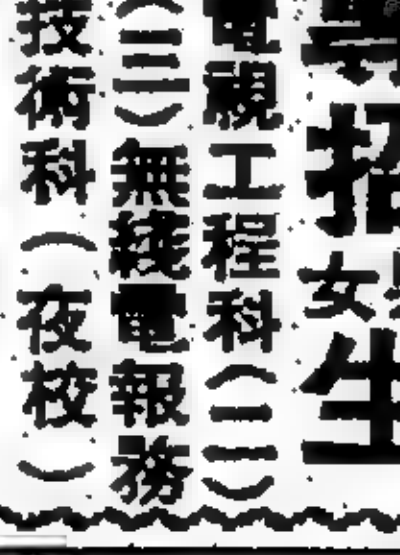 招女生
電視工程科（二）
（三）無綫電報務
技術科（夜校）